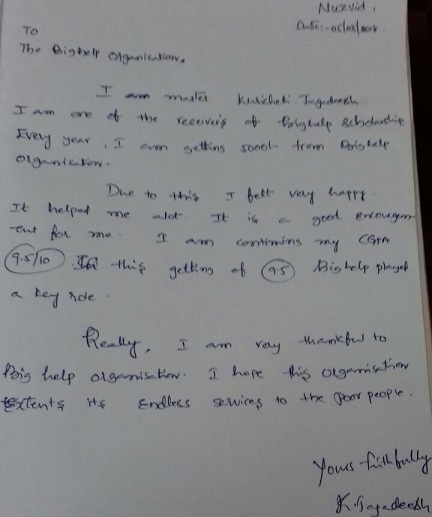 Nuzvid,
Date:- 05/03/2018
To
The Bighelp Organisation,
I am master Kuricheti Jagadeesh.
I am one of the receiver's of Bighelp Scholarship
Every year, I am getting 5000/- from Bighelp
Organisation.
Due to this I felt very happy.
It helped me alot It is a good encouragem
ent for me. I am continuing my CGPA
9.5/10 In this getting of 9.5 Bighelp played
a key role.
Really, I am very thankful to
Big help organisation. I hope this organisation
Extents its Endless services to the poor people.
Yours faithfully
K. Jagadeesh